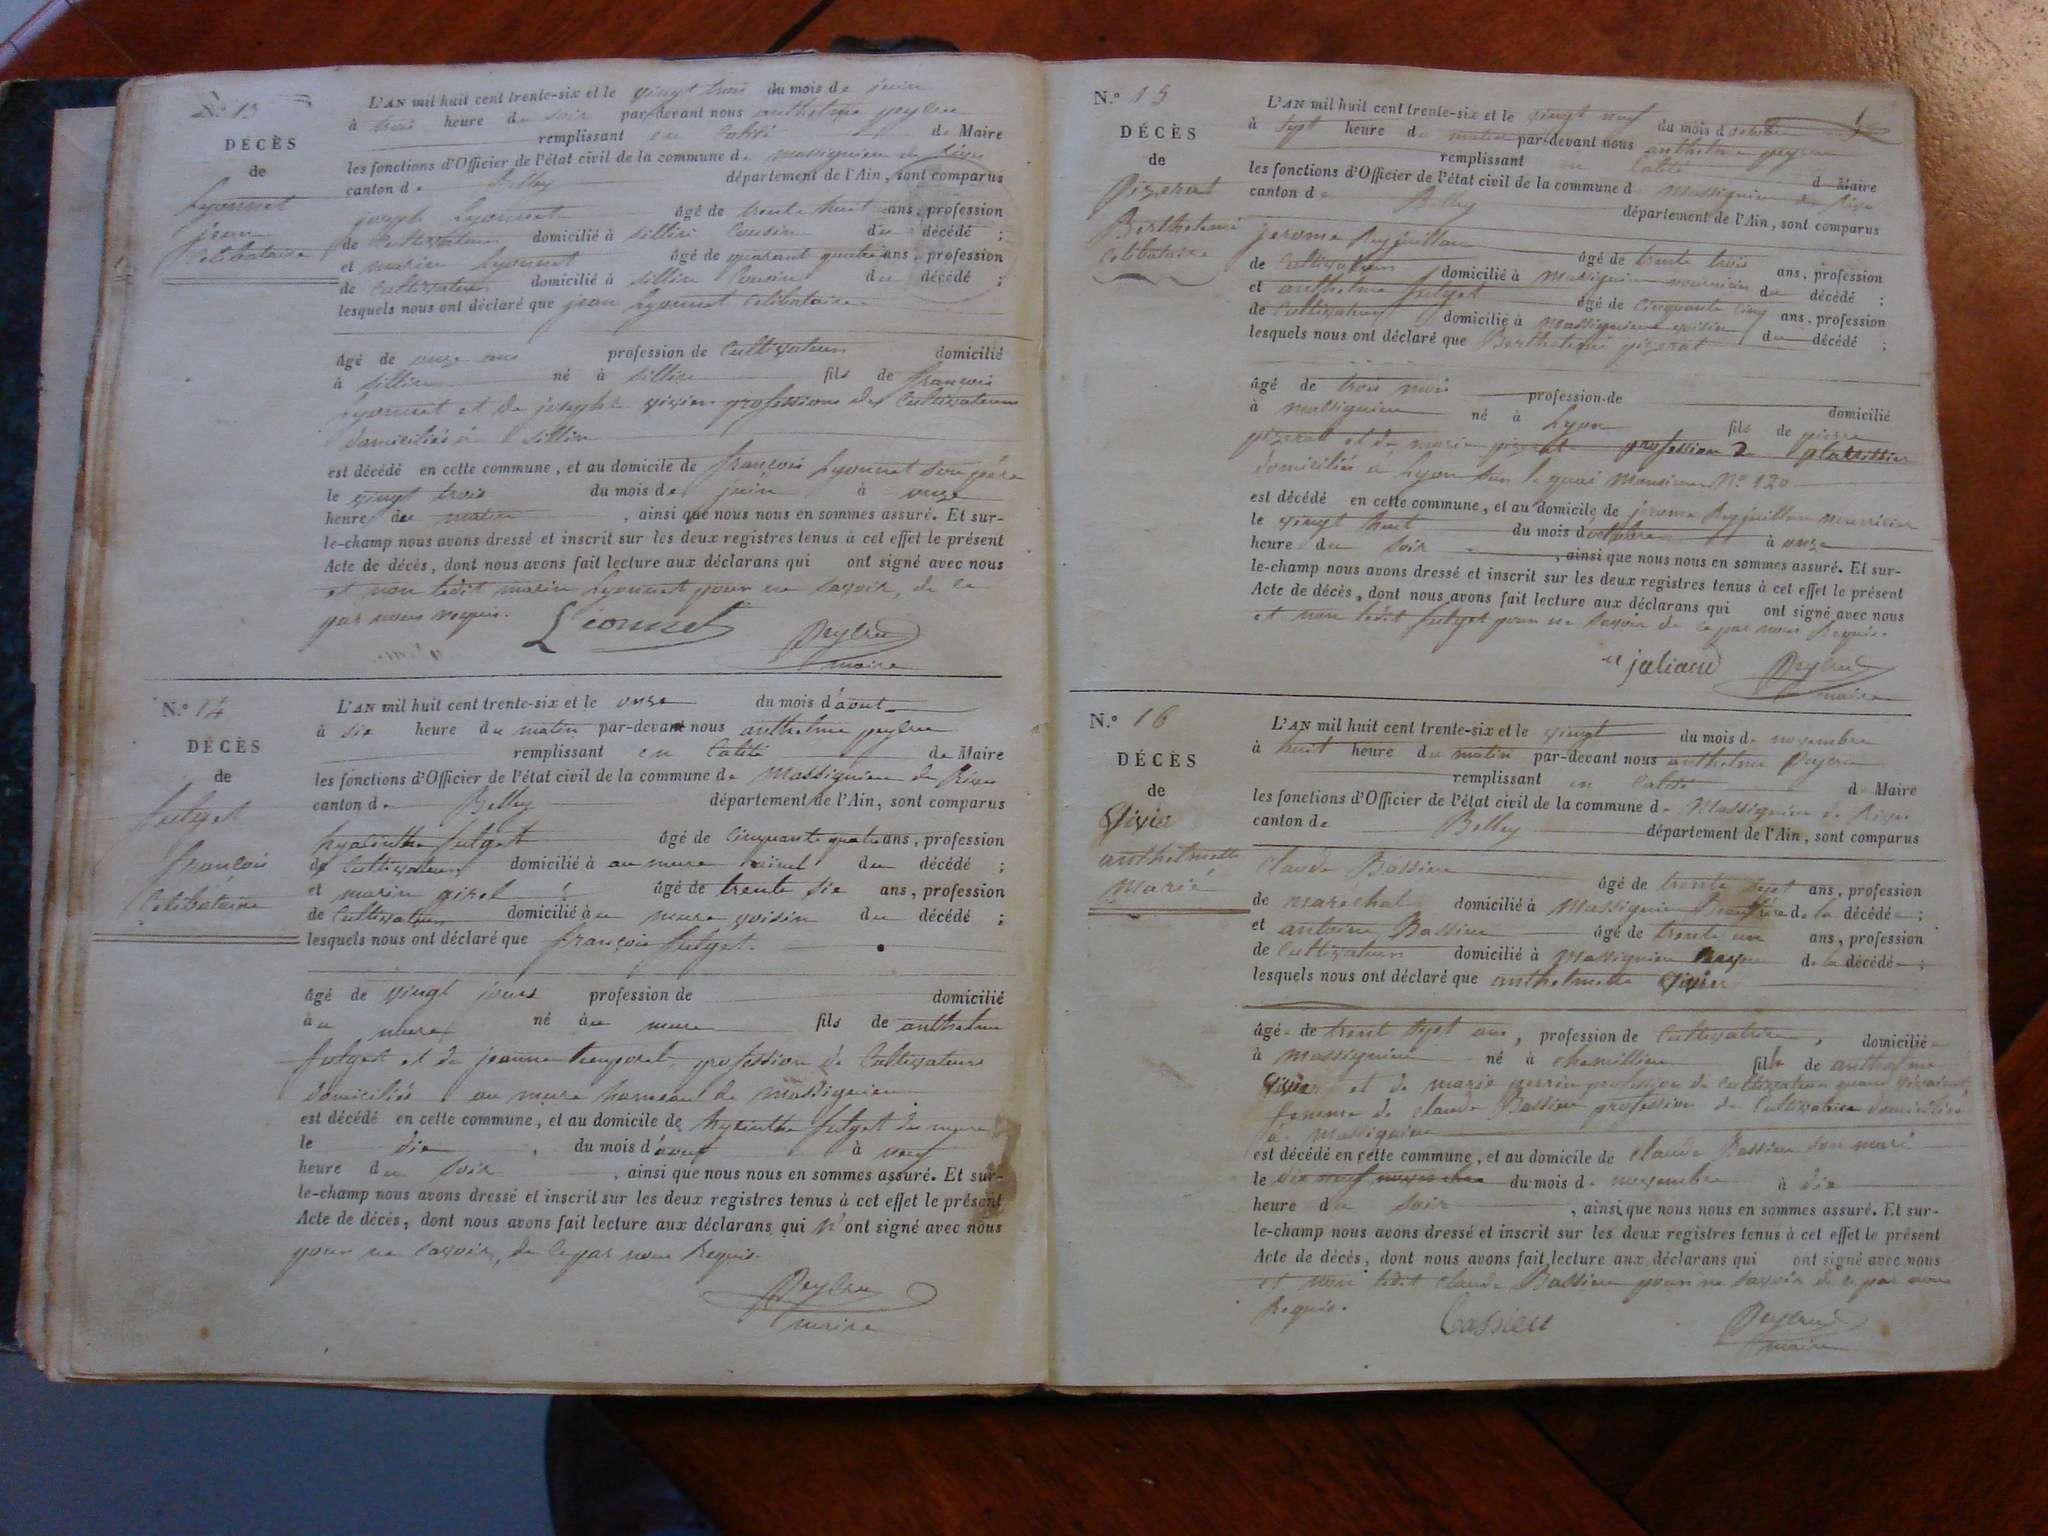 N.º 13
DÉCÈS
de
Lyonnet
jean
Celibataire
L'AN mil huit cent trente-six et le vingt trois du mois de juin
à trois heure du soir par-devant nous anthelme peyleu
remplissant en Calité de Maire
les fonctions d'Officier de l'état civil de la commune de massignieu de Rives
canton de Belley département de l'Ain, sont comparus
joseph Lyonnet âgé de trente huit ans, profession
de Cultivateur domicilié à sillin Cousin du décédé ;
et marin Lyonnet âgé de quarant quatre ans, profession
de Cultivateur domicilié à sillin Cousin du décédé ;
lesquels nous ont déclaré que jean Lyonnet Celibataire
âgé de onze ans profession de Cultivateur domicilié
à sillin né à sillin fils de françois
Lyonnet et de josephte vivien professions des Cultivateurs
domiciliés à sillin
est décédé en cette commune, et au domicile de françois Lyonnet son père
le vingt trois du mois de juin à onze
heure du matin , ainsi que nous nous en sommes assuré. Et sur-
le-champ nous avons dressé et inscrit sur les deux registres tenus à cet effet le présent
Acte de décès, dont nous avons fait lecture aux déclarans qui ont signé avec nous
et non ledit marin Lyonnet pour ne savoir, de ce
par nous requis.
Léonnet
maire
N.º 14
DÉCÈS
de
futget
françois
Celibataire
L'AN mil huit cent trente-six et le onze du mois d'aout
à six heure du matin par-devant nous anthelme peyleu
remplissant en Calité de Maire
les fonctions d'Officier de l'état civil de la commune de Massignieu de Rives
canton de Belley département de l'Ain, sont comparus
hyacinthe futget âgé de Cinquante quatre ans, profession
de Cultivateur domicilié à au mure du décédé ;
et marin girel âgé de trente six ans, profession
de Cultivateur domicilié à au mure voisin du décédé ;
lesquels nous ont déclaré que françois futget.
âgé de vingt jours profession de domicilié
à au mure né à au mure fils de anthelme
futget et de jeanne temporal, profession de Cultivateurs
domiciliés au mure hameau de massignieu
est décédé en cette commune, et au domicile de hyacinthe futget du mure
le dix du mois d'aout à neuf
heure du soir , ainsi que nous nous en sommes assuré. Et sur-
le-champ nous avons dressé et inscrit sur les deux registres tenus à cet effet le présent
Acte de décès, dont nous avons fait lecture aux déclarans qui n'ont signé avec nous
pour ne savoir, de ce par nous Requis.
maire
N.º 15
DÉCÈS
de
Pizerat
Berthelemi
Celibataire
L'AN mil huit cent trente-six et le vingt neuf du mois d octobre
à sept heure du matin par-devant nous anthelme peyleu
remplissant en Calité d Maire
les fonctions d'Officier de l'état civil de la commune d Massignieu de Rives
canton de Belley département de l'Ain, sont comparus
jerome Reyjuillan âgé de trente trois ans, profession
de Cultivateur domicilié à Massignieu nourricier du décédé ;
et anthelme futget âgé de Cinquante Cinq ans, profession
de Cultivateur domicilié à Massignieu voisin du décédé ;
lesquels nous ont déclaré que Berthelemi pizerat
âgé de trois mois profession de domicilié
à massignieu né à Lyon fils de pierre
pizerat et de marie profession de
domiciliés à Lyon sur le quai Monsieur Nº 120
est décédé en cette commune, et au domicile de jerome Reyjuillan nourricier
le vingt huit du mois d'octobre à onze
heure du soir , ainsi que nous nous en sommes assuré. Et sur-
le-champ nous avons dressé et inscrit sur les deux registres tenus à cet effet le présent
Acte de décès, dont nous avons fait lecture aux déclarans qui ont signé avec nous
et non ledit futget pour ne savoir de ce par nous Requis.
maire
N.º 16
DÉCÈS
de
anthelmette
Marié
L'AN mil huit cent trente-six et le vingt du mois de novembre
à huit heure du matin par-devant nous anthelme Peyleu
remplissant en Calité d Maire
les fonctions d'Officier de l'état civil de la commune de Massignieu de Rives
canton de Belley département de l'Ain, sont comparus
claude Bassieu âgé de trente sept ans, profession
de maréchal domicilié à Massignieu de la décédée ;
et antoine Bassieu âgé de trente un ans, profession
de Cultivateur domicilié à Massignieu de la décédée ;
lesquels nous ont déclaré que anthelmette
âgée de trent sept ans, profession de Cultivatrice, domiciliée
à Massignieu né à chemillieu fille de anthelme
et de marie perrin profession de Cultivateur quand vivaient,
femme de claude Bassieu profession de Cultivatrice domiciliée
à Massignieu
est décédé en cette commune, et au domicile de claude Bassieu son mari
le dix neuf novembre du mois de novembre à dix
heure du soir , ainsi que nous nous en sommes assuré. Et sur-
le-champ nous avons dressé et inscrit sur les deux registres tenus à cet effet le présent
Acte de décès, dont nous avons fait lecture aux déclarans qui ont signé avec nous
et non ledit claude Bassieu pour ne savoir de ce par nous
Requis.
Bassieu
maire